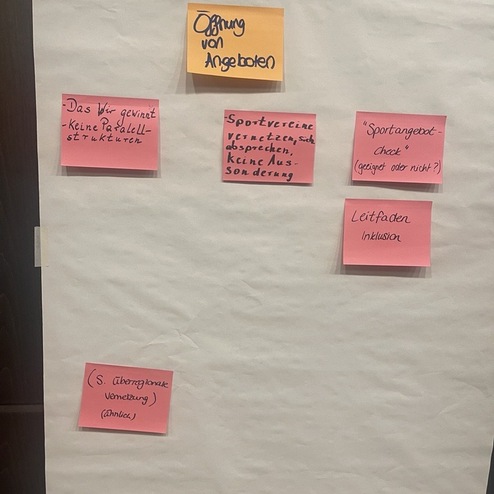 Öffnung
von
Angeboten
-Das Wir gewinnt
-Keine Paralell-
strukturen
-Sportvereine
vernetzen, sich
absprechen,
Keine Aus-
sonderung
"Sportangebot-
Check"
(geeignet oder nicht?)
Leitfaden
Inklusion
(S. überregionale
Vernetzung)
(ähnlich)